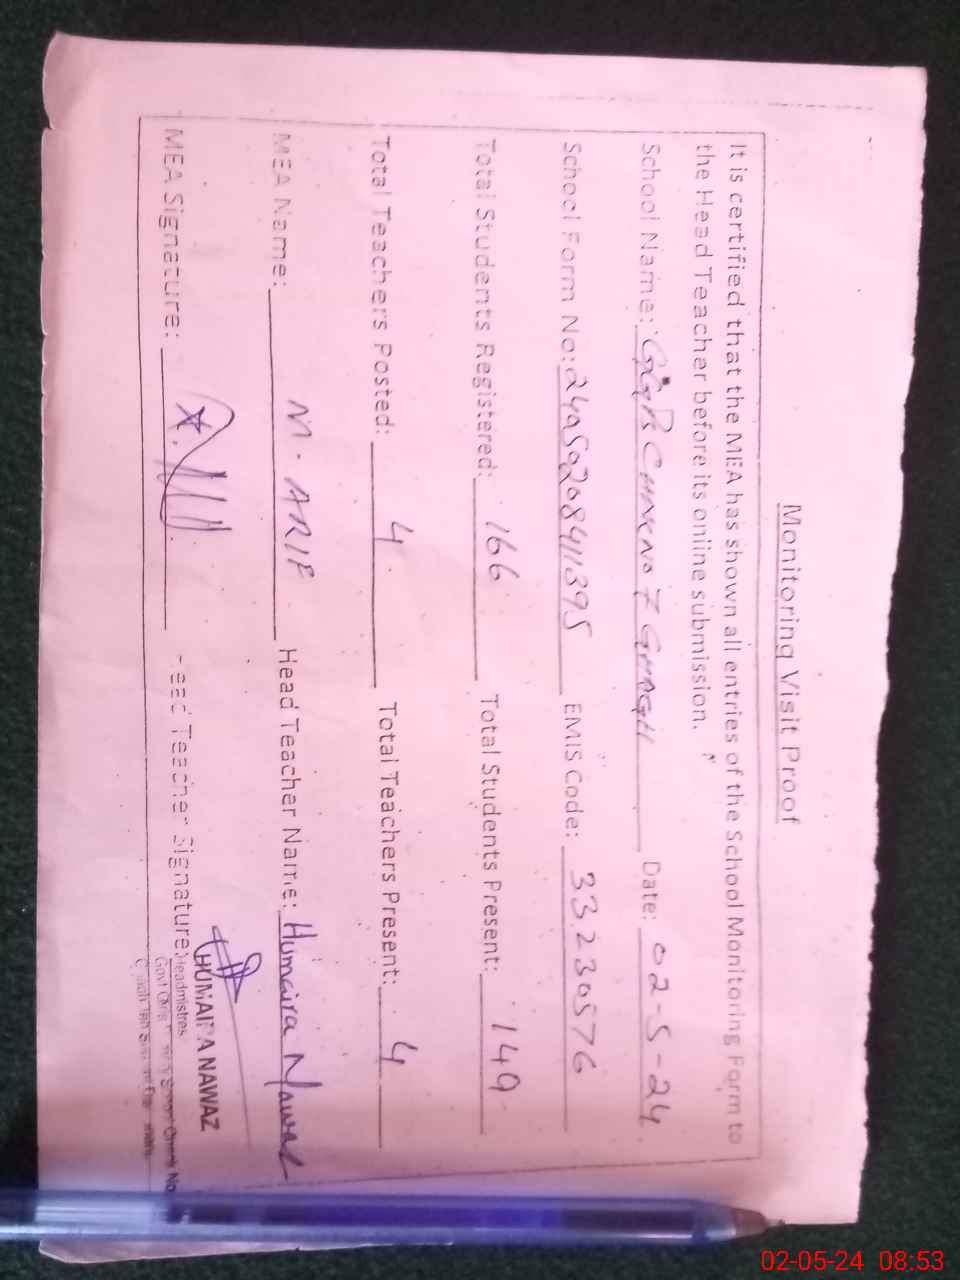 Monitoring Visit Proof
It is certified that the MEA has shown all entries of the School Monitoring Form to
the Head Teacher before its online submission.
School Name: GGPS CHAK NO 7 GHAGH Date: 02-5-24
School Form No: 24050208411395 EMIS Code: 33230576
Total Students Registered: 166 Total Students Present: 149
Total Teachers Posted: 4 Total Teachers Present: 4
MEA Name: M. ARIF Head Teacher Name: Humaira Nawaz
MEA Signature: Head Teacher Signature:
HUMAIRA NAWAZ
Headmistres
Govt Girls
02-05-24 08:53